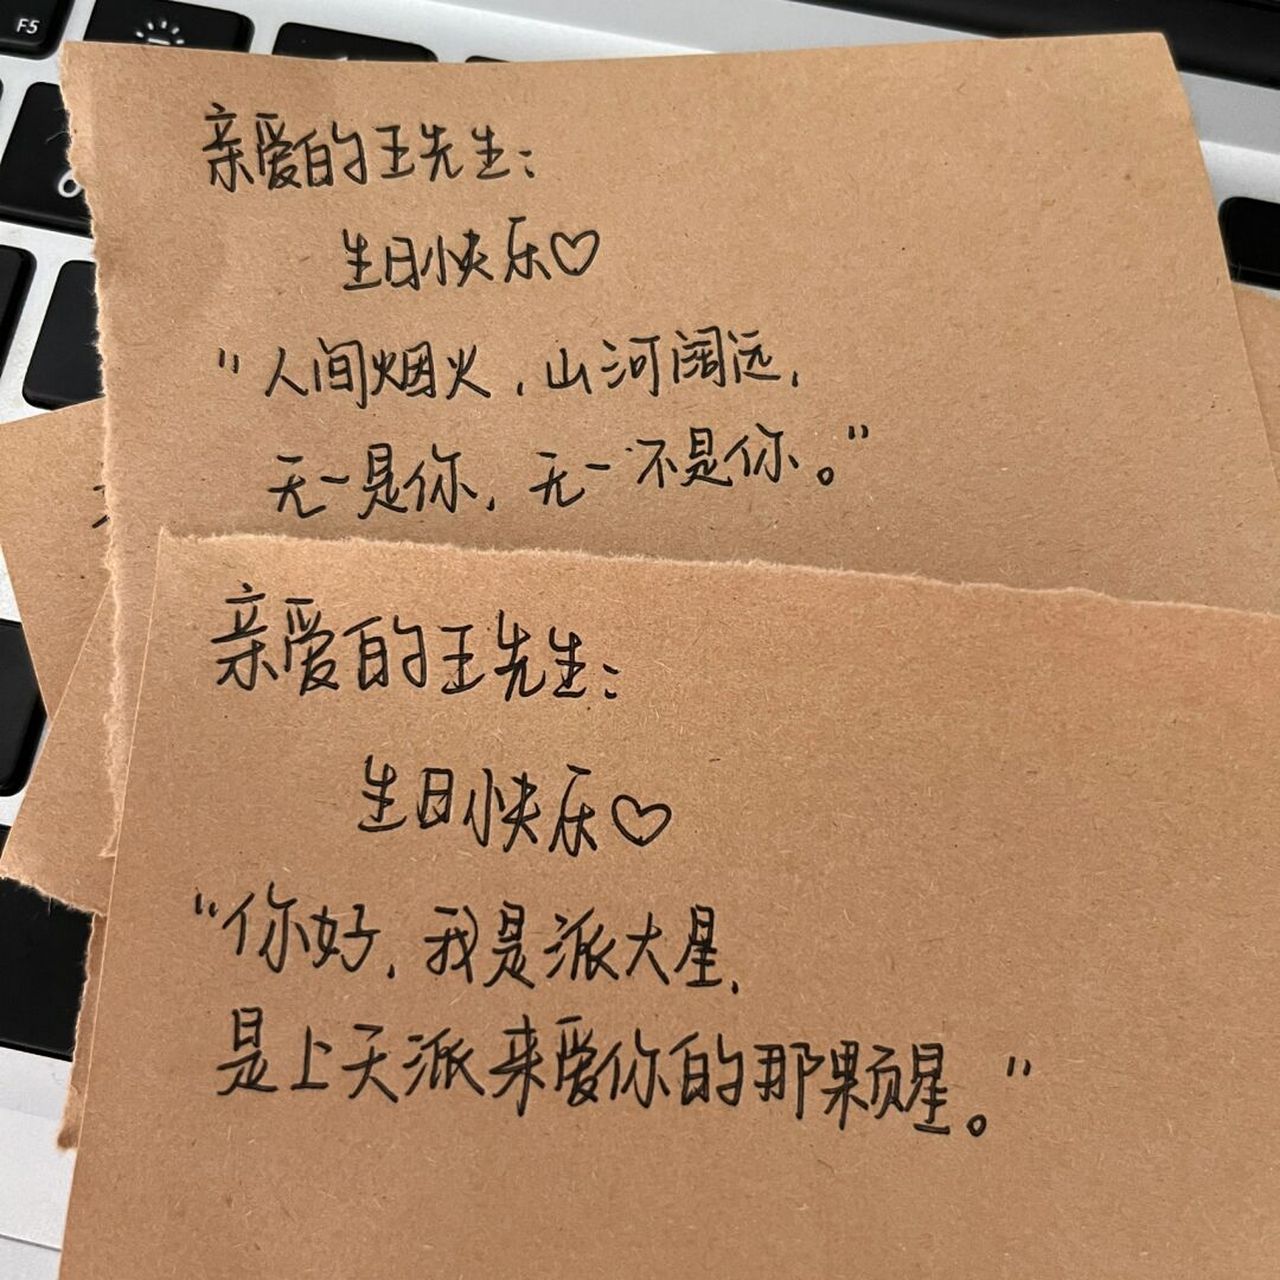 F5
6
亲爱的王先生：
生日快乐♡
"人间烟火，山河阔远，
无一是你，无一不是你。"
亲爱的王先生：
生日快乐♡
"你好，我是派大星，
是上天派来爱你的那颗星。"